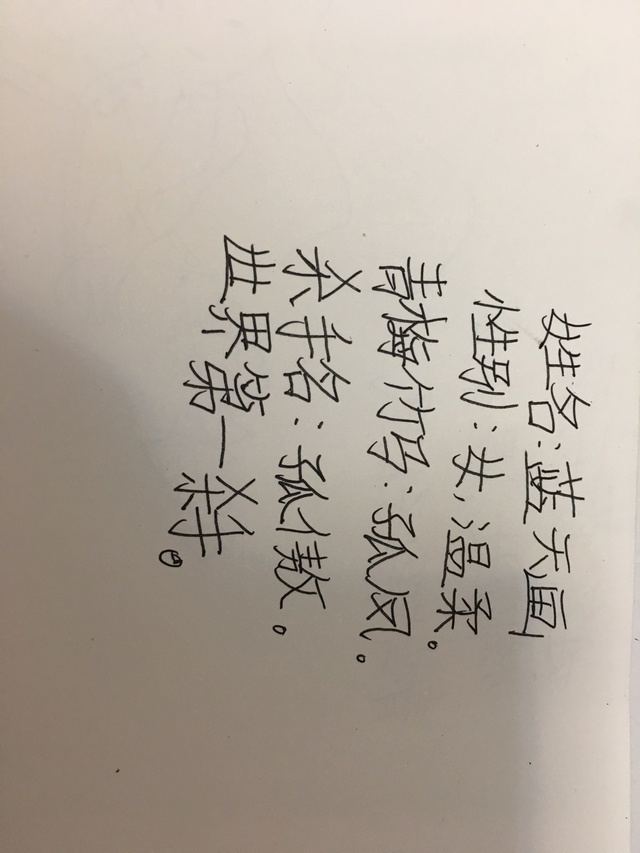 姓名:蓝天画
性别:女,温柔。
青梅竹马:孤风。
杀手名:孤傲。
世界第一杀手。